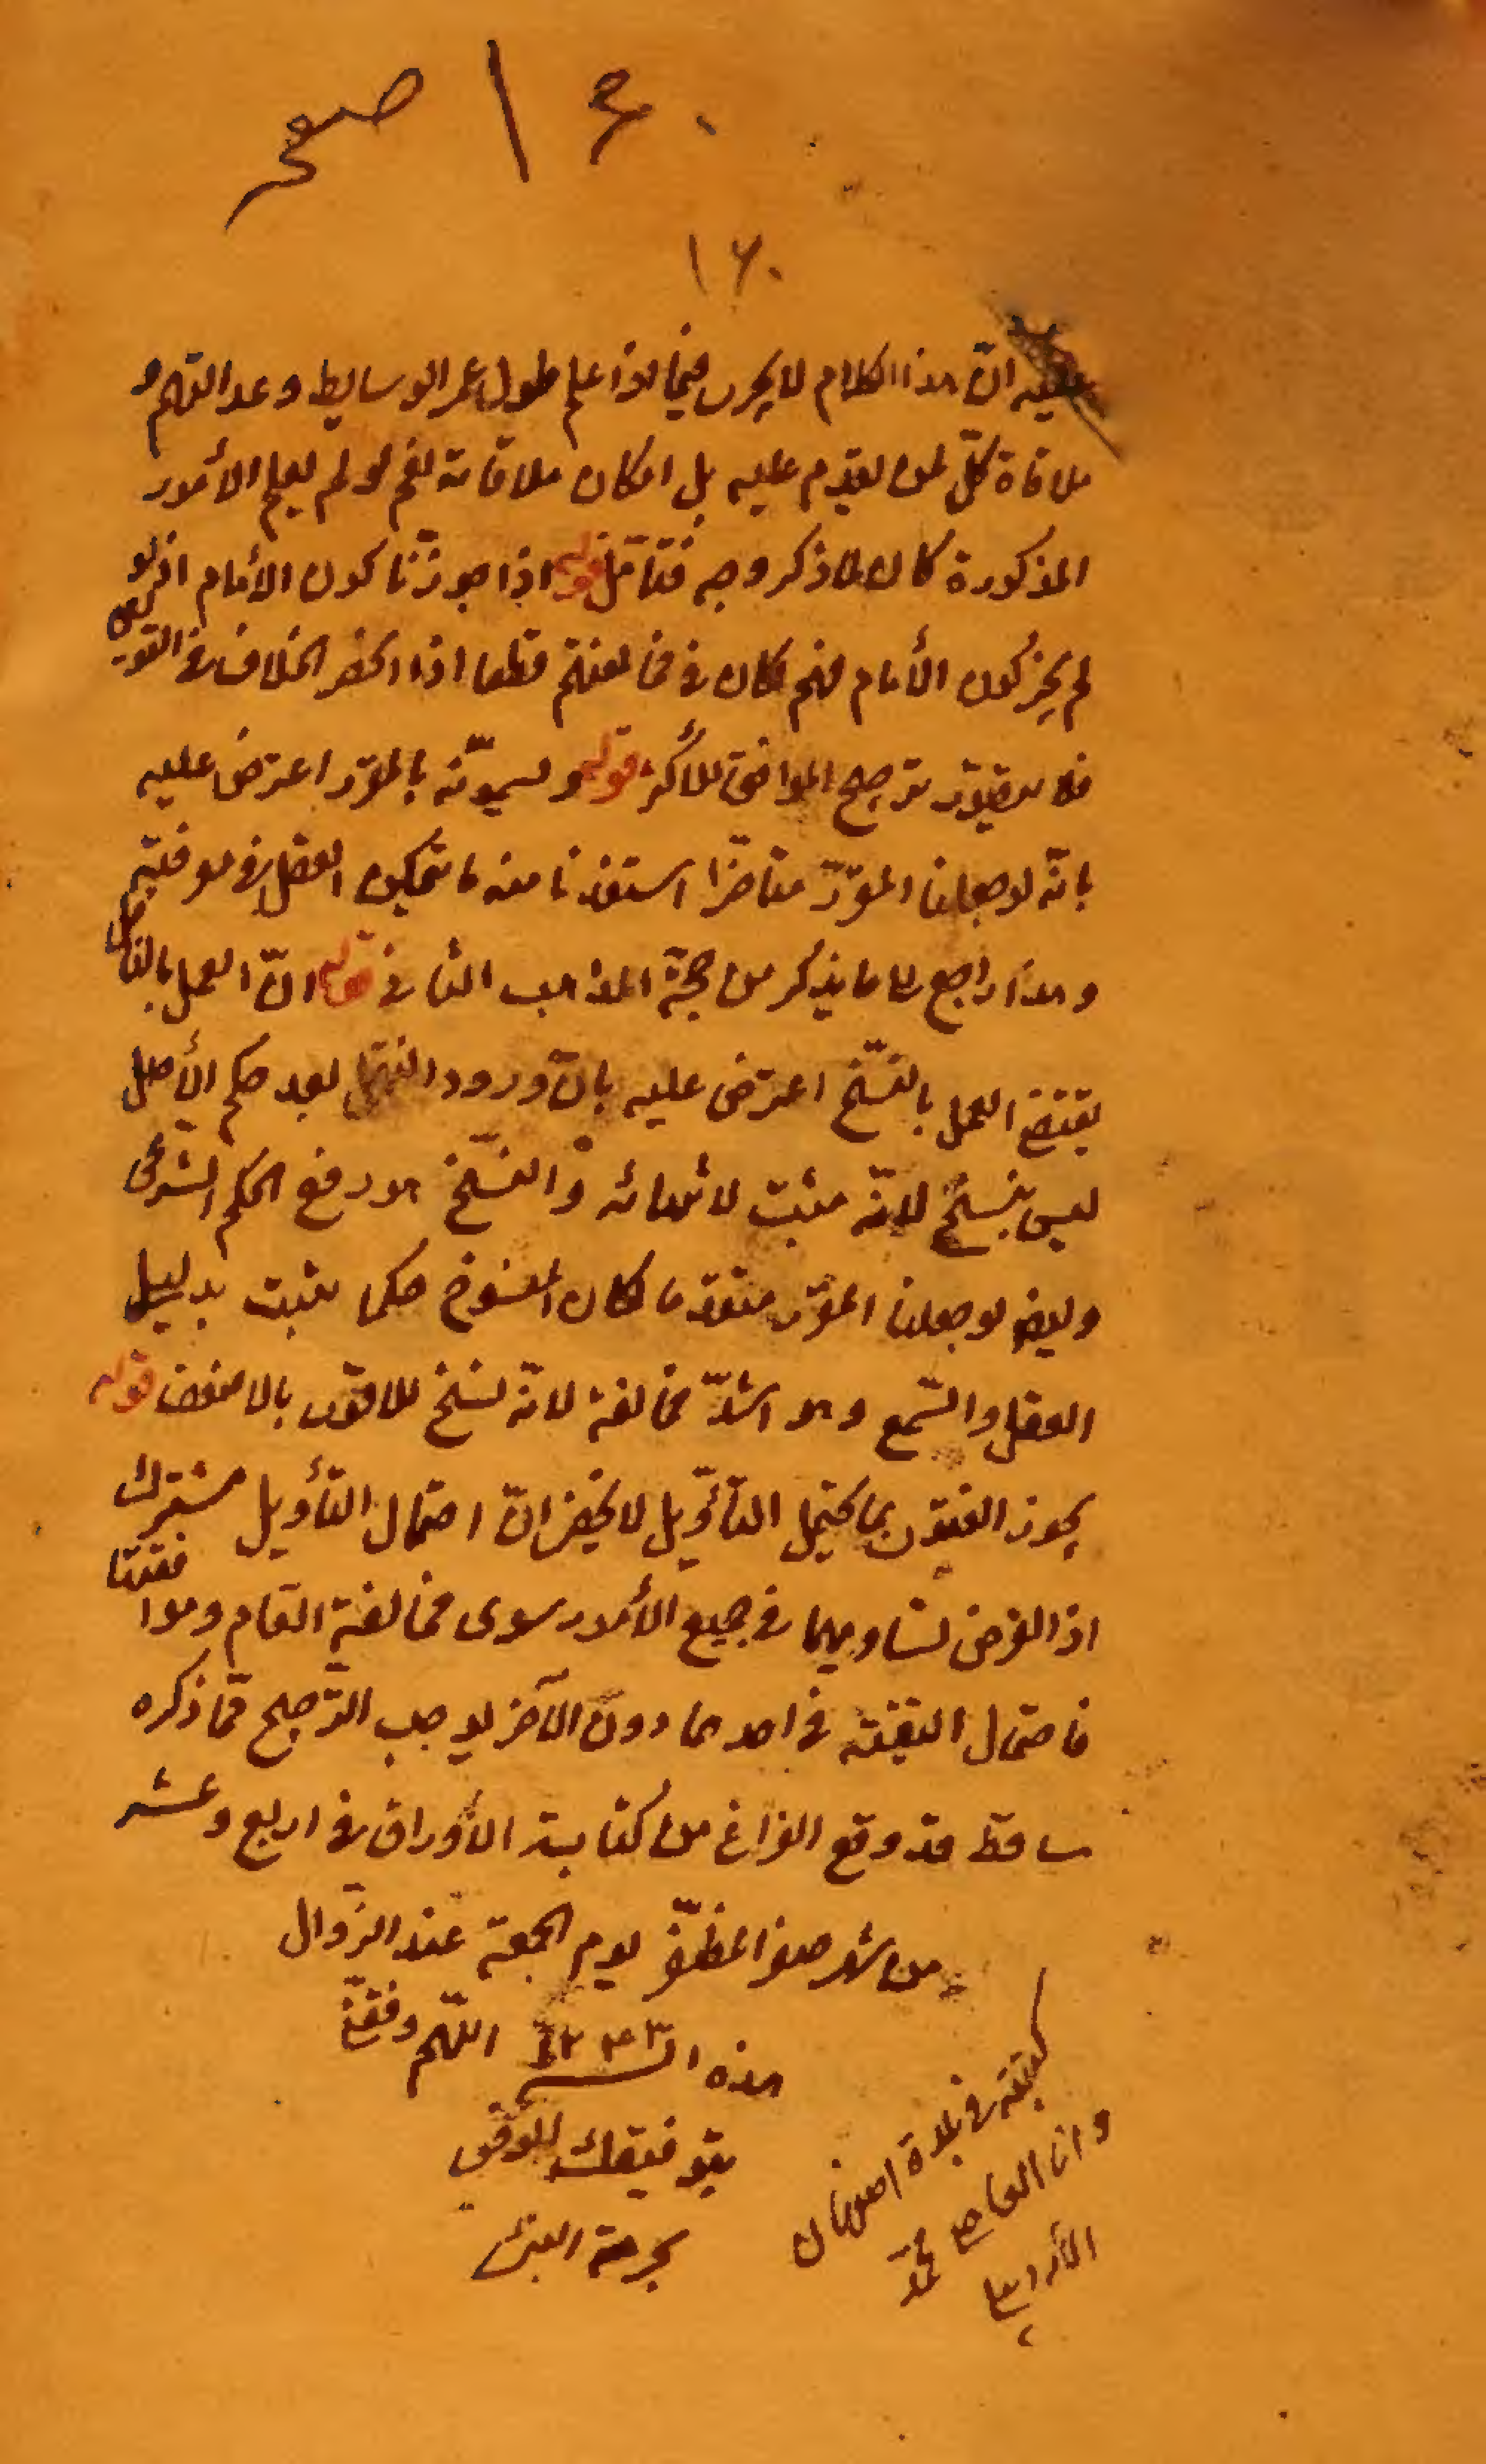 ١٤٠ صفحه
١٦٠
عليه انّ هذا الكلام لا يجرى فيما اذا علم طول عمر الوسايط وعد التهم و
ملاقاة كلّ لمن تقدم عليه بل امكان ملاقاته نعم لو لم يعلم الأمور
المذكورة كان لما ذكر وجه فتأمّل قوله اذا جوزنا كون الأمام اذ لو
لم يجز كون الأمام منهم كان فى مخالفتهم قطعا اذا انحصر الخلاف فى القولين
فلا يتصوّر ترجيح الموافق للأكثر قوله ويسمونه بالمقرّر اعترض عليه
بانّه لو جعلنا المقرّر متأخرا استفدنا منه ما يتمكن العقل فى معرفته
وهذا راجع الى ما يذكر من حجّة المذهب الثانى قوله انّ العمل بالناقل
يقتضى العمل بالنّسخ اعترض عليه بانّ ورود الناقل بعد حكم الأصل
ليس بنسخ لانّه مثبت لانتهائه والنّسخ هو رفع الحكم الشّرعى
وايضا لو جعلنا المقرّر متقدّما لكان المنسوخ حكما يثبت بدليل
العقل والسّمع وهو اشدّ مخالفة لانّه نسخ للاقوى بالاضعف قوله
يجوز الفتوى بما يحتمل التأويل لا يخفى انّ احتمال التأويل مشترك
اذ الفرض تساويهما فى جميع الأمور سوى مخالفة العام وموافقتها
فاحتمال التقيّة فى احدهما دون الآخر يوجب التّرجيح فما ذكره
ساقط قد وقع الفراغ من كتابة الأوراق فى اربع وعشر
من شهر صفر المظفّر يوم الجمعة عند الزّوال
هذه السنة اللّهم وفقنى
بتوفيقك
بحرمة النبى
كتبته فى بلدة اصفهان
وانا العاصى محمّد